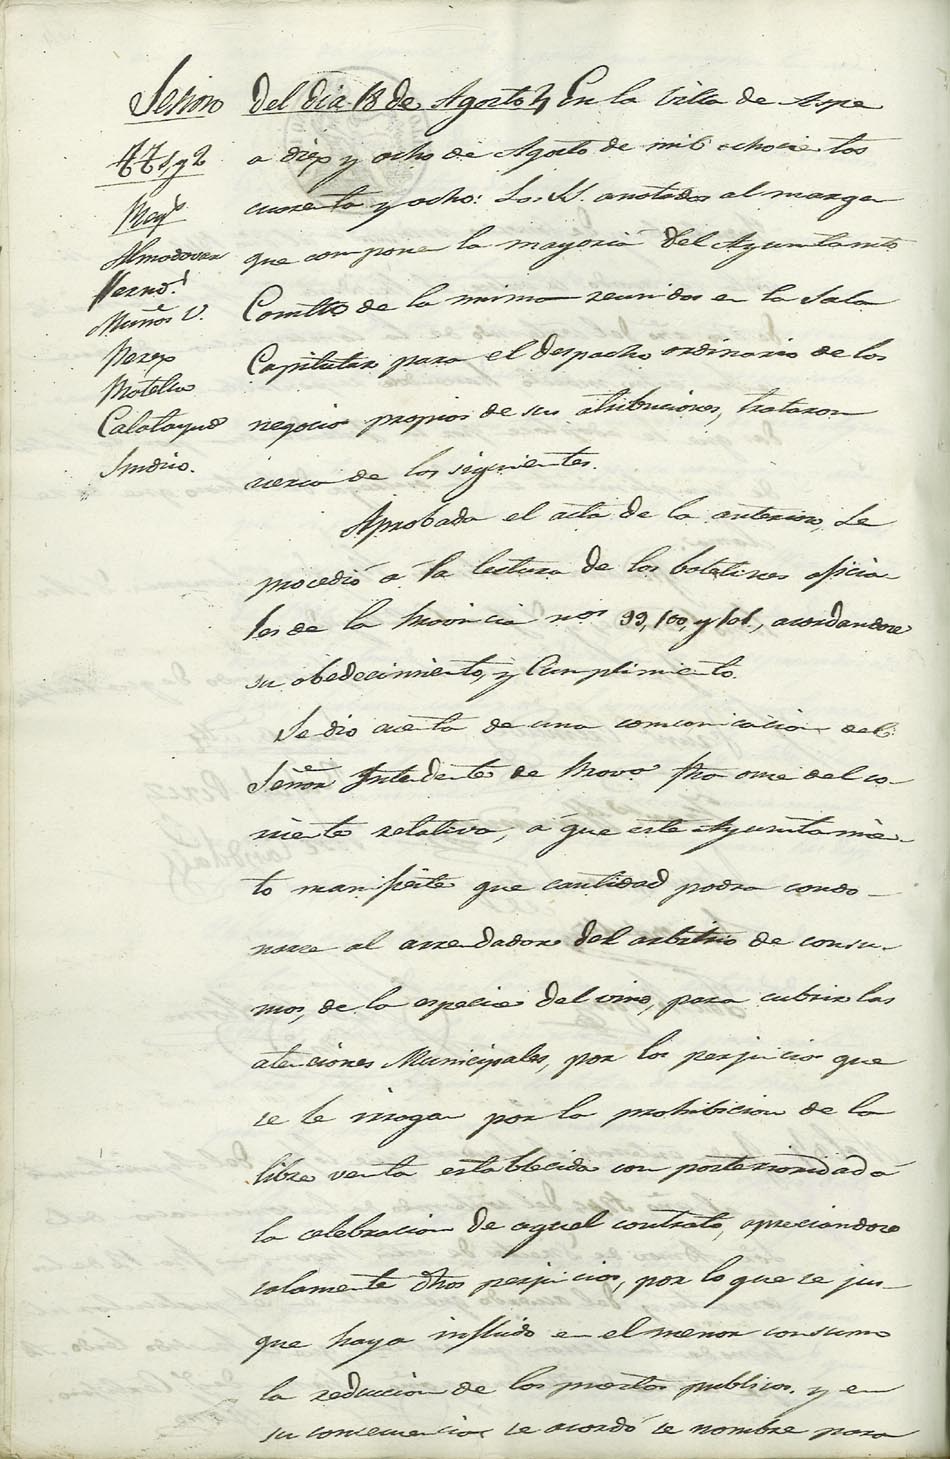 Sesion del dia 18 de Agosto } En la Villa de Aspe
a diez y ocho de Agosto de mil ochocientos
cuarenta y ocho: Los SS. anotados al margen
que componen la mayoria del Ayuntamto
Constl de la misma reunidos en la Sala
Capitular para el despacho ordinario de los
negocios propios de sus atribuciones, trataron
cerca de los siguientes.
Almodovar
Muñoz V.
Perez
Calatayud
Sindico.
Aprobada el acta de la anterior, se
procedió a la lectura de los boletines oficia-
les de la Provincia nos 99, 100, y 101, acordandose
su obedecimiento, y Cumplimiento.
Se dio cuenta de una comunicacion del
Señor Intendente de Prova fha once del co-
rriente relativa, a que este Ayuntamien-
to manifieste que cantidad podra condo-
narse al arrendador del arbitrio de consu-
mos, de la especie del vino, para cubrir las
atenciones Municipales, por los perjuicios que
se le irrogan por la prohibicion de la
libre venta establecida con posterioridad á
la celebracion de aquel contrato, apreciandose
solamente dhos perjuicios, por lo que se jus-
que haya influido en el menor consumo
la reduccion de los puestos publicos. y en
su consecuencia se acordó se nombre para